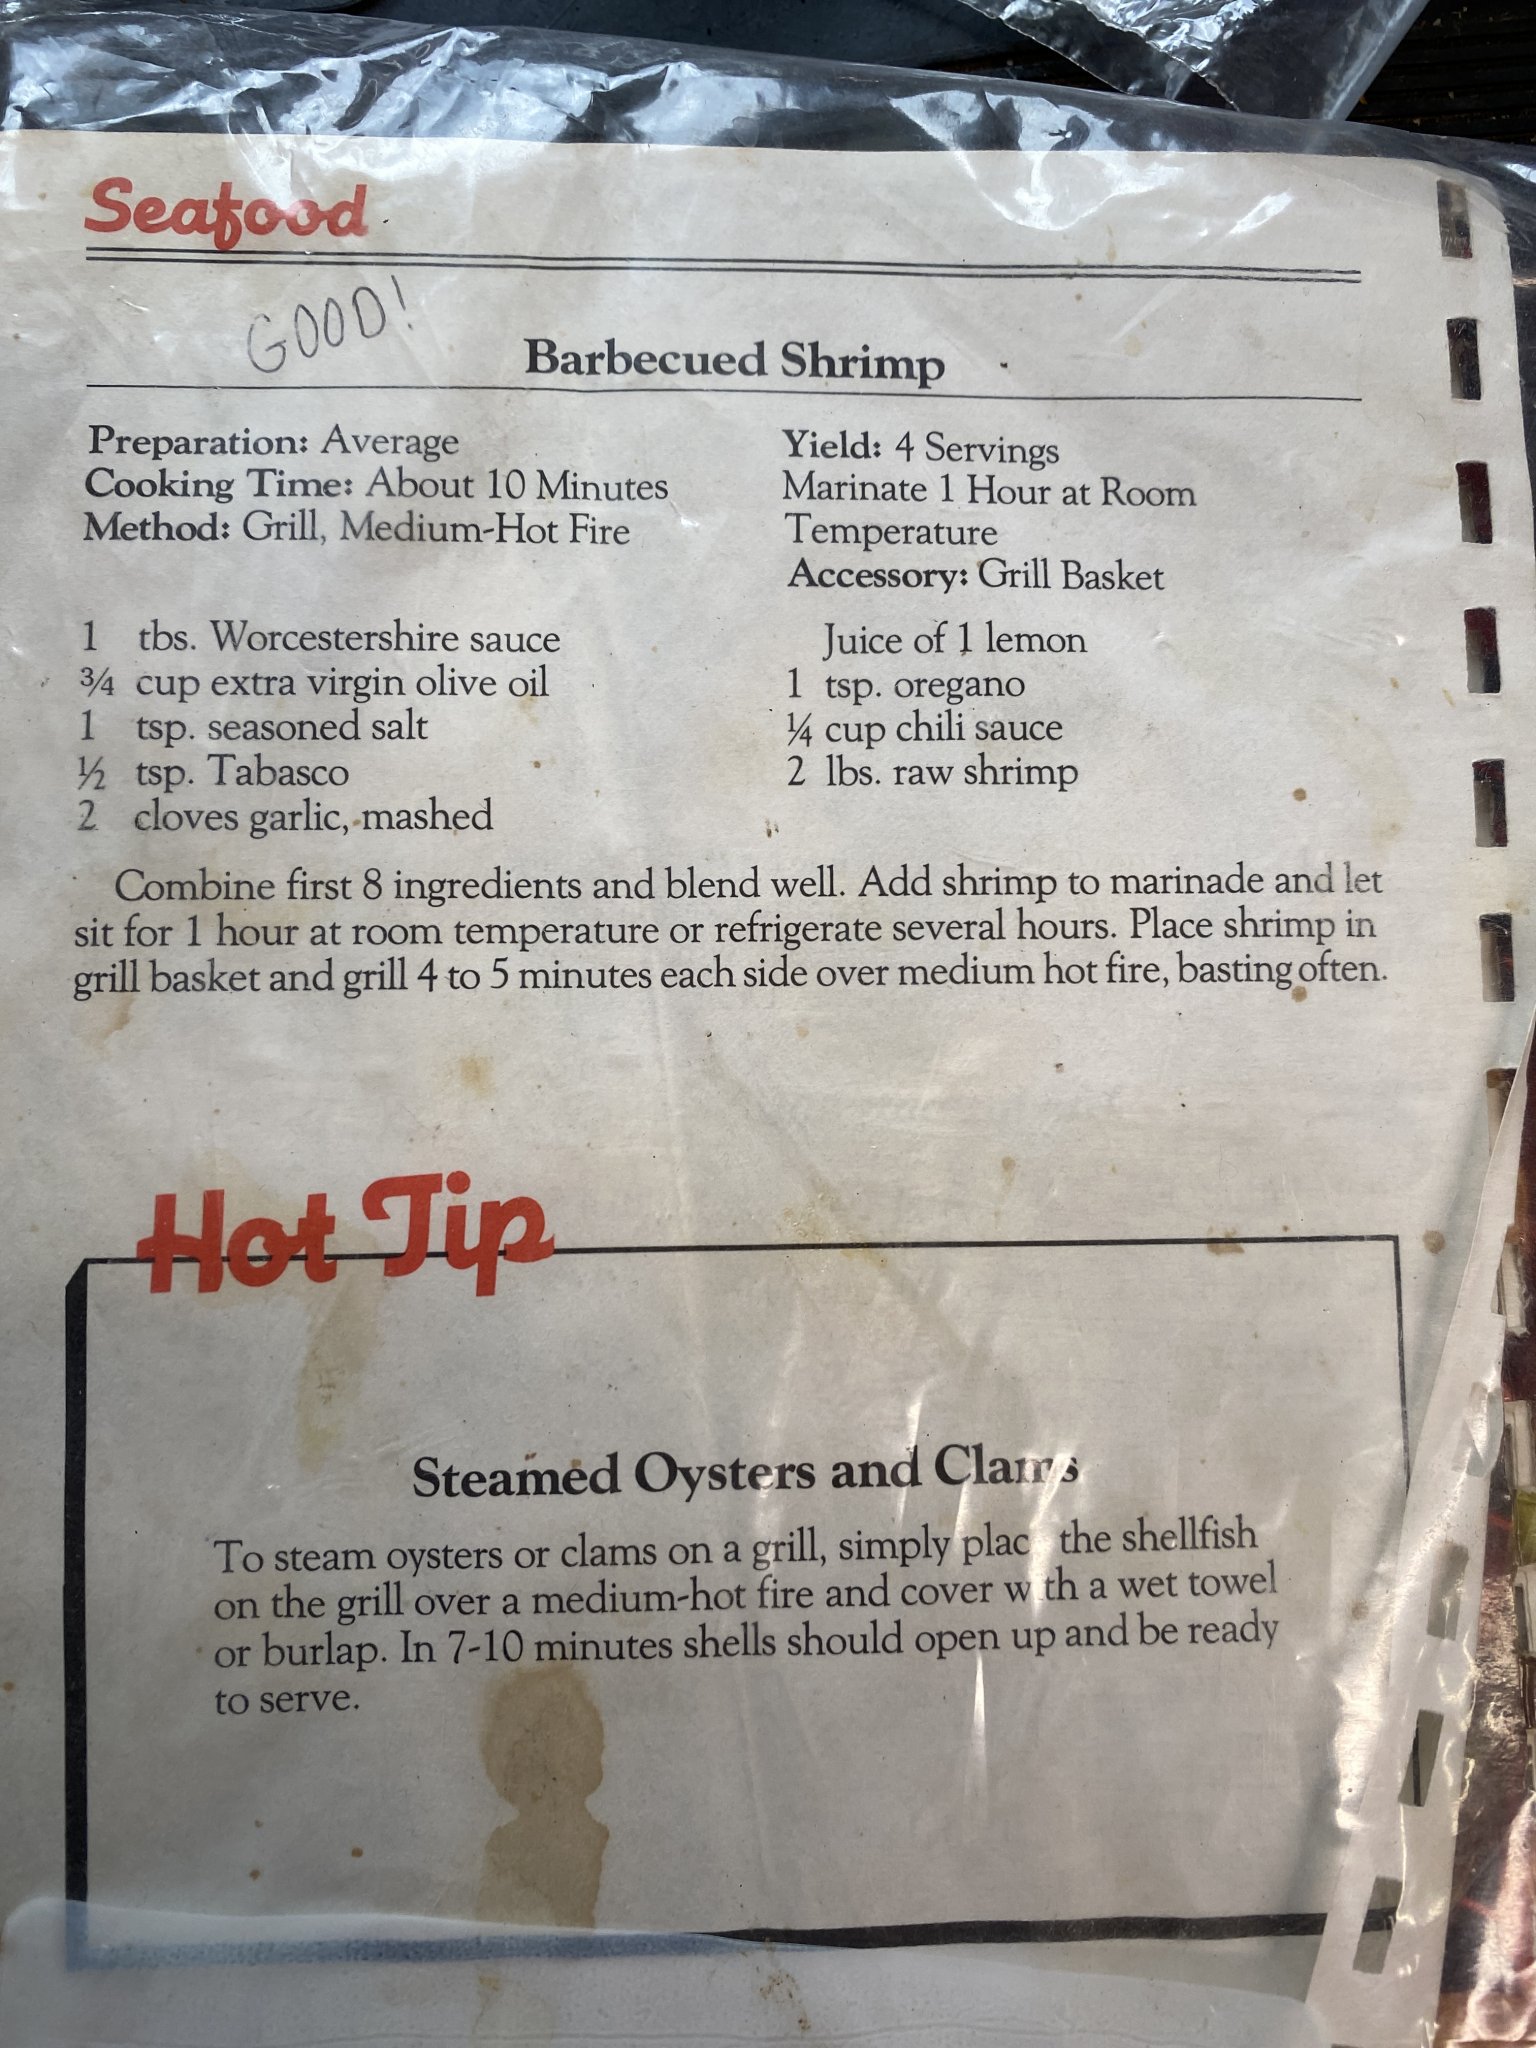 Seafood
GOOD!
Barbecued Shrimp
Preparation: Average
Cooking Time: About 10 Minutes
Method: Grill, Medium-Hot Fire
Yield: 4 Servings
Marinate 1 Hour at Room
Temperature
Accessory: Grill Basket
1 tbs. Worcestershire sauce
¾ cup extra virgin olive oil
1 tsp. seasoned salt
½ tsp. Tabasco
2 cloves garlic, mashed
Juice of 1 lemon
1 tsp. oregano
¼ cup chili sauce
2 lbs. raw shrimp
Combine first 8 ingredients and blend well. Add shrimp to marinade and let
sit for 1 hour at room temperature or refrigerate several hours. Place shrimp in
grill basket and grill 4 to 5 minutes each side over medium hot fire, basting often.
Hot Tip
Steamed Oysters and Clams
To steam oysters or clams on a grill, simply place the shellfish
on the grill over a medium-hot fire and cover with a wet towel
or burlap. In 7-10 minutes shells should open up and be ready
to serve.